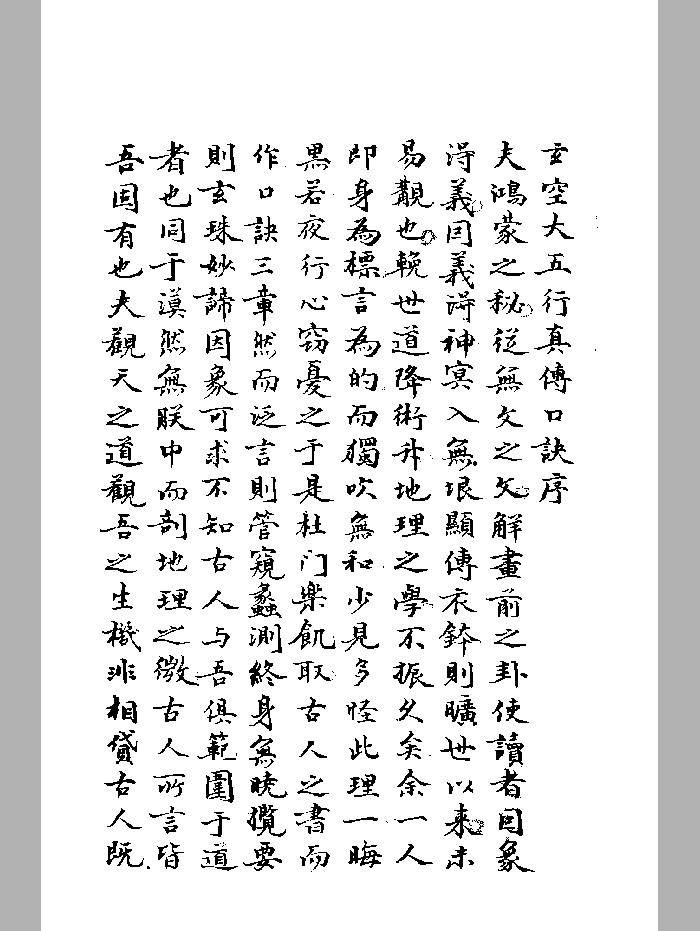 玄空大五行真傳口訣序
夫鴻蒙之秘從無文之文解畫前之卦使讀者因象
淂義因義淂神冥入無垠顯傳衣鉢則曠世以来未
易覯也輓世道降術升地理之學不振久矣余一人
即身為標言為的而獨吹無和少見多怪此理一晦
黑若夜行心竊憂之于是杜门樂飢取古人之書而
作口訣三章然而泛言則管窺蠡測終身無曉攬要
則玄珠妙諦因象可求不知古人与吾俱範圍于道
者也同于漠然無朕中而剖地理之微古人所言皆
吾固有也夫觀天之道觀吾之生機非相貸古人既